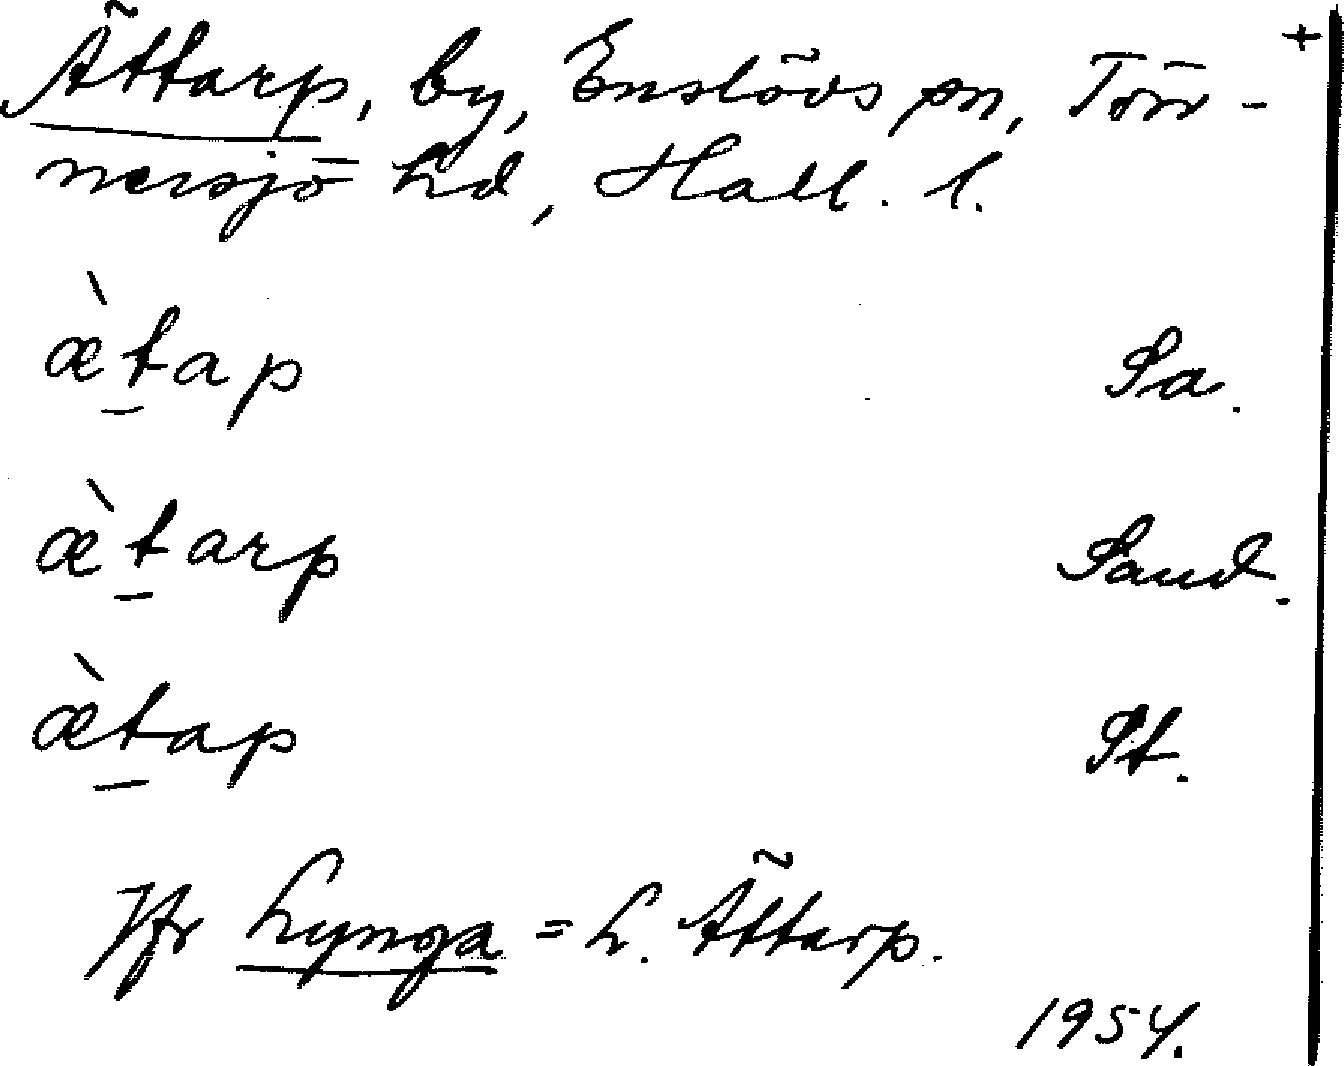 Ättarp, by, Enslövs sn, Tön- +
nersjö hd, Hall. l.
æ̀t̠ap Sa.
æ̀t̠arp Sand.
æ̀t̠ap St.
Jfr Lynga = L. Ättarp.
1954.